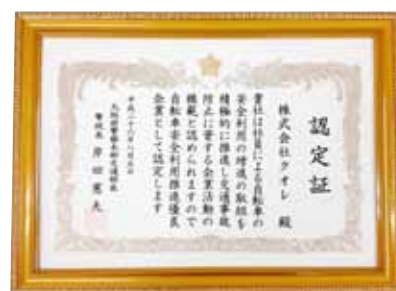 認定証
株式会社クオレ 殿
貴社は社員による自転車の
安全利用の増進の取組を
積極的に推進し交通事故
防止に寄する企業活動の
模範と認められますので
自転車安全利用推進優良
企業として認定します
平成二十六年八月五日
大阪府警察本部交通部長
警視長 岸田憲夫